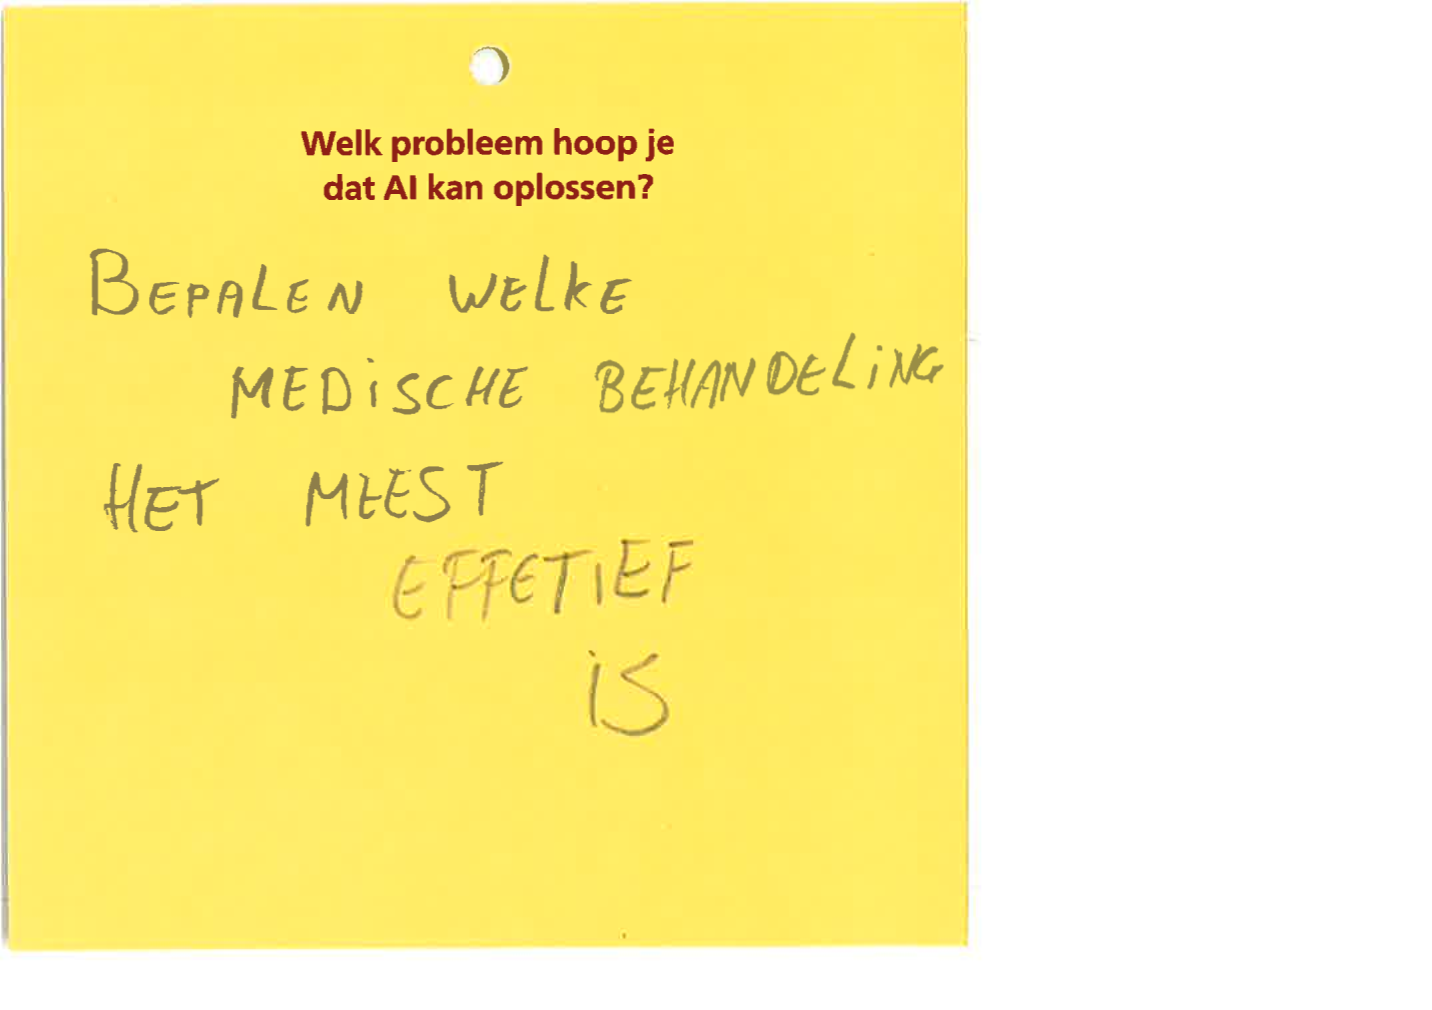 Welk probleem hoop je
dat AI kan oplossen?
BEPALEN WELKE
MEDiSCHE BEHANDELiNG
HET MEEST
EFFETiEF
iS